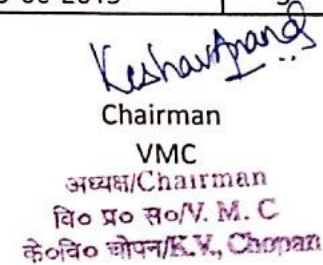 Keshav Anand
Chairman
VMC
अध्यक्ष/Chairman
वि० प्र० स०/V. M. C
के०वि० चोपन/K.V., Chopan